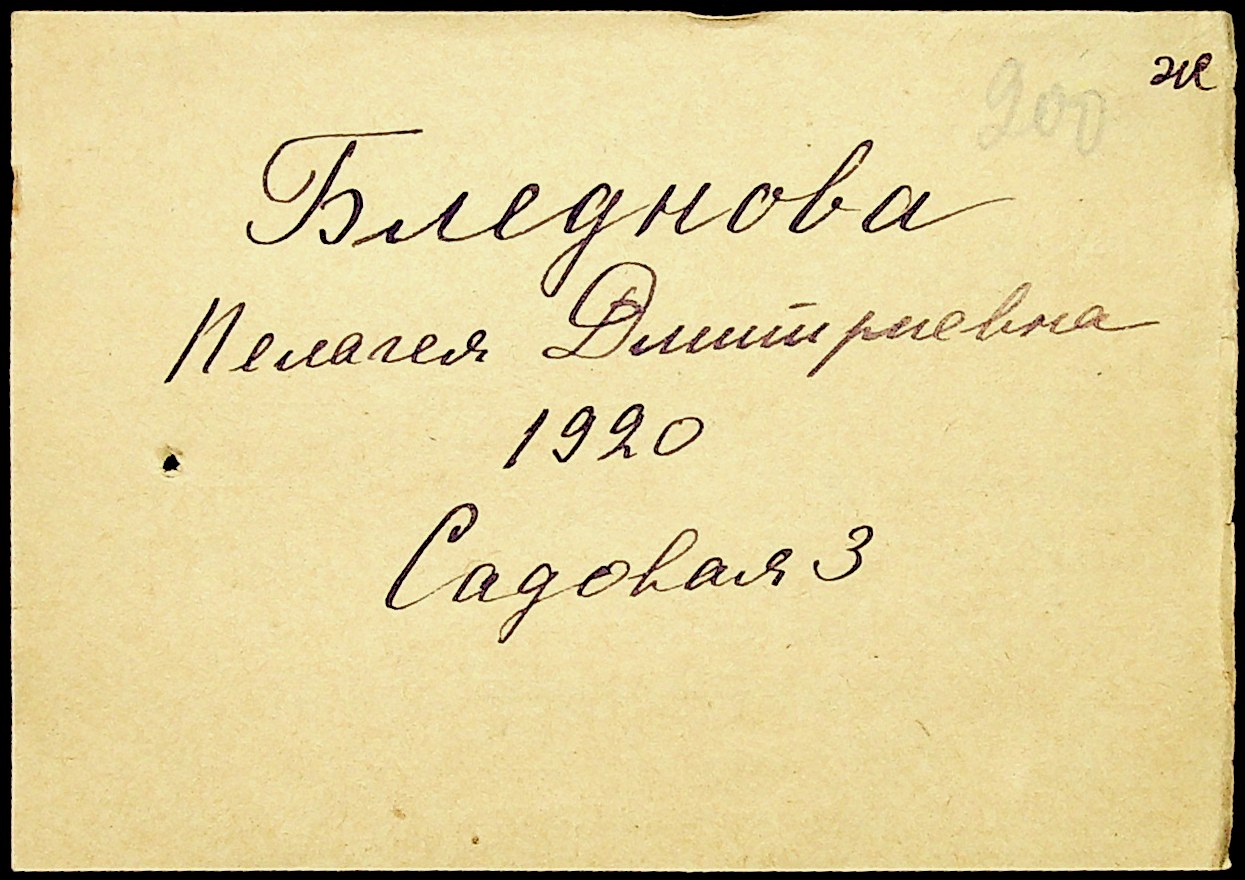 ж
200
Бледнова
Пелагея Дмитриевна
1920
Садовая 3